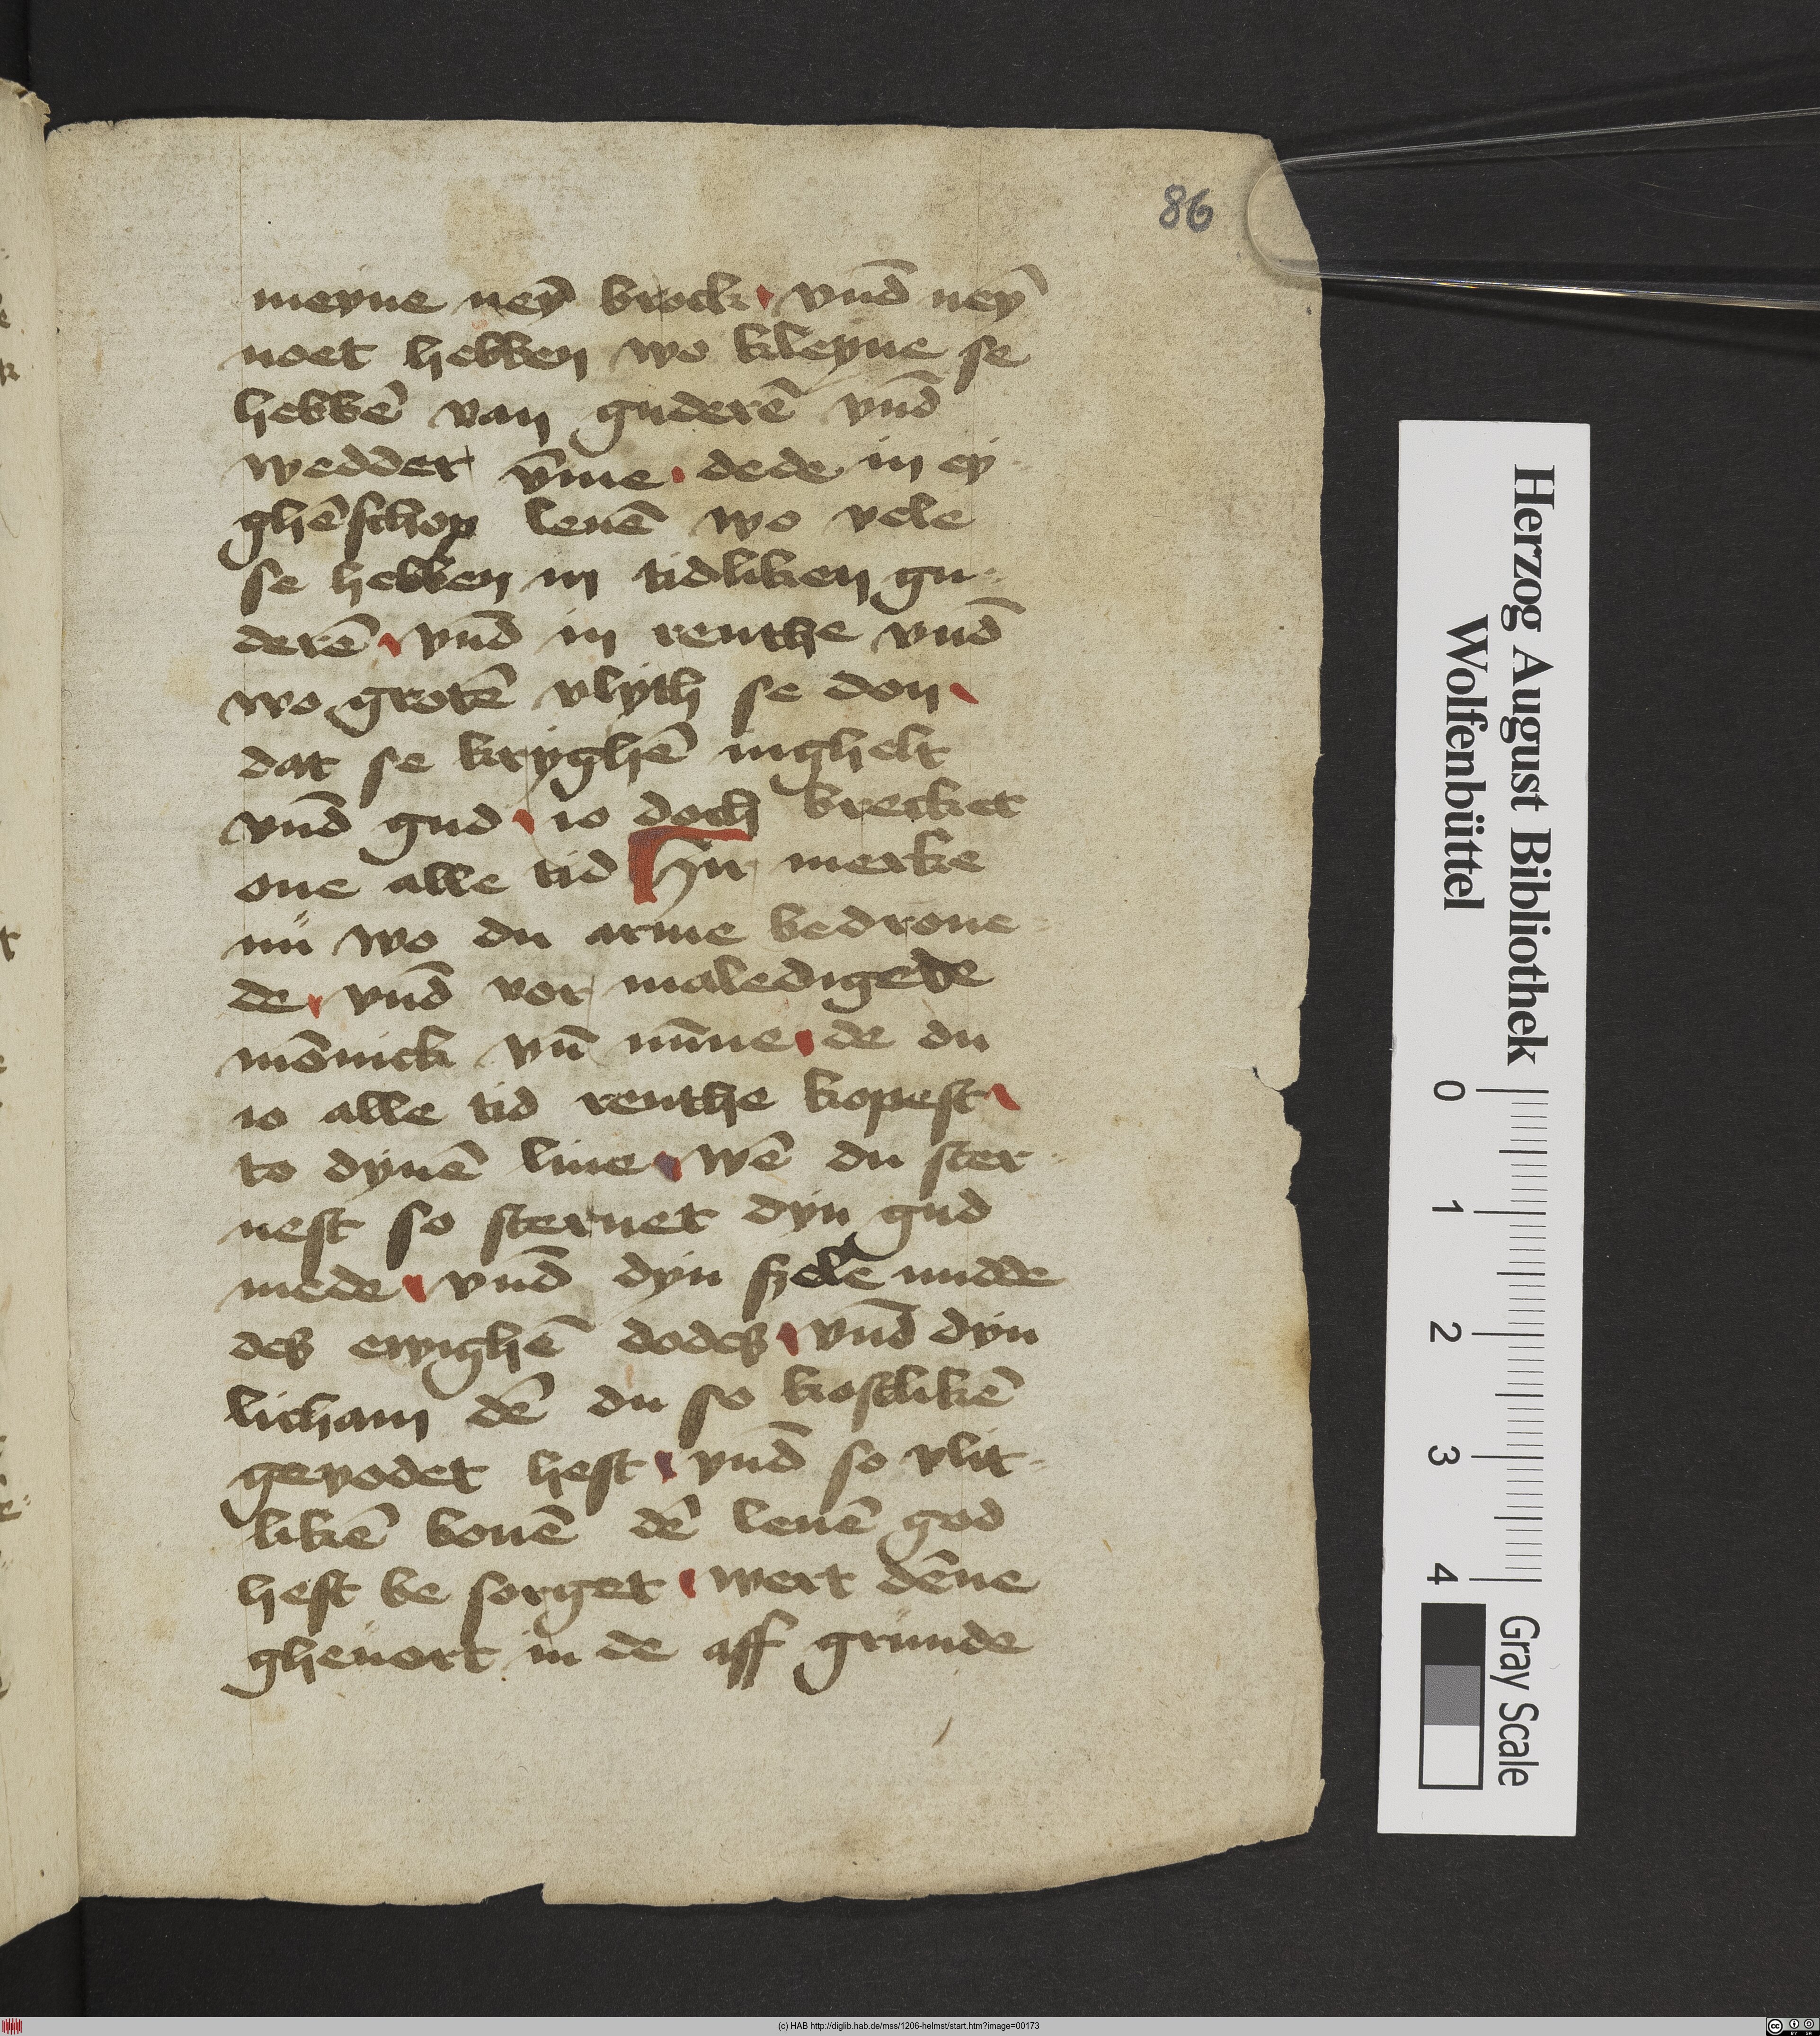 86
meyne neȳ brock vnd̄ neȳ
noet hebben wo kleyne se
hebbē van guderē vnd̄
wedder v̄me dede in ey
ghēschop leuē wo vele
se hebben in tidliken gu-
derē vnd̄ in renthe vnd̄
wo grotē vlyth se don
dat se kryghē in ghelt
vnd̄ gud io doch brecket
one alle tid Hir merke
nu wo du arme bedroue
de vnd̄ vor maledigede
mōnick vn̄ nūne de du
io alle tid renthe kopest
to dynē liue wē du ster
uest so steruet dyn gud
mede vnd̄ dyn szele midde
des ewighē dodes vnd̄ dyn
licham dē du so kostlikē
gevodet hest vnd̄ so vlit-
likē bouē dē leuē god
hest be sorget wert dēne
gheuort in de aff grunde
Herzog August Bibliothek
Wolfenbüttel
0 1 2 3 4
Gray Scale
(c) HAB http://diglib.hab.de/mss/1206-helmst/start.htm?image=00173